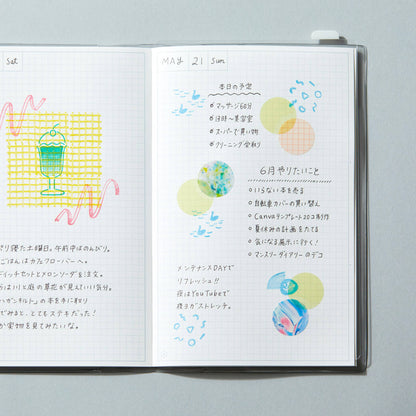 Sat
ぐり寝た土曜日。午前中はのんびり。
ごはんはカフェフローバーへ。
ドイッチセットとメロンソーダを注文。
らは川と庭の草花が見えていい気分。
ハンガンキルト」の本を手に取り
でみると、とてもステキだった!
か実物を見てみたいな。
MAY 21 Sun
本日の予定
マッサージ60分
13時〜美容室
スーパーで買い物
クリーニング受取り
6月やりたいこと
いらない本を売る
自転車カバーの買い替え
Canvaテンプレート2コ制作
夏休みの計画をたてる
気になる展示に行く!
マンスリーダイアリーのデコ
メンテナンスDAYで
リフレッシュ!!
夜はYouTubeで
寝ヨガストレッチ。